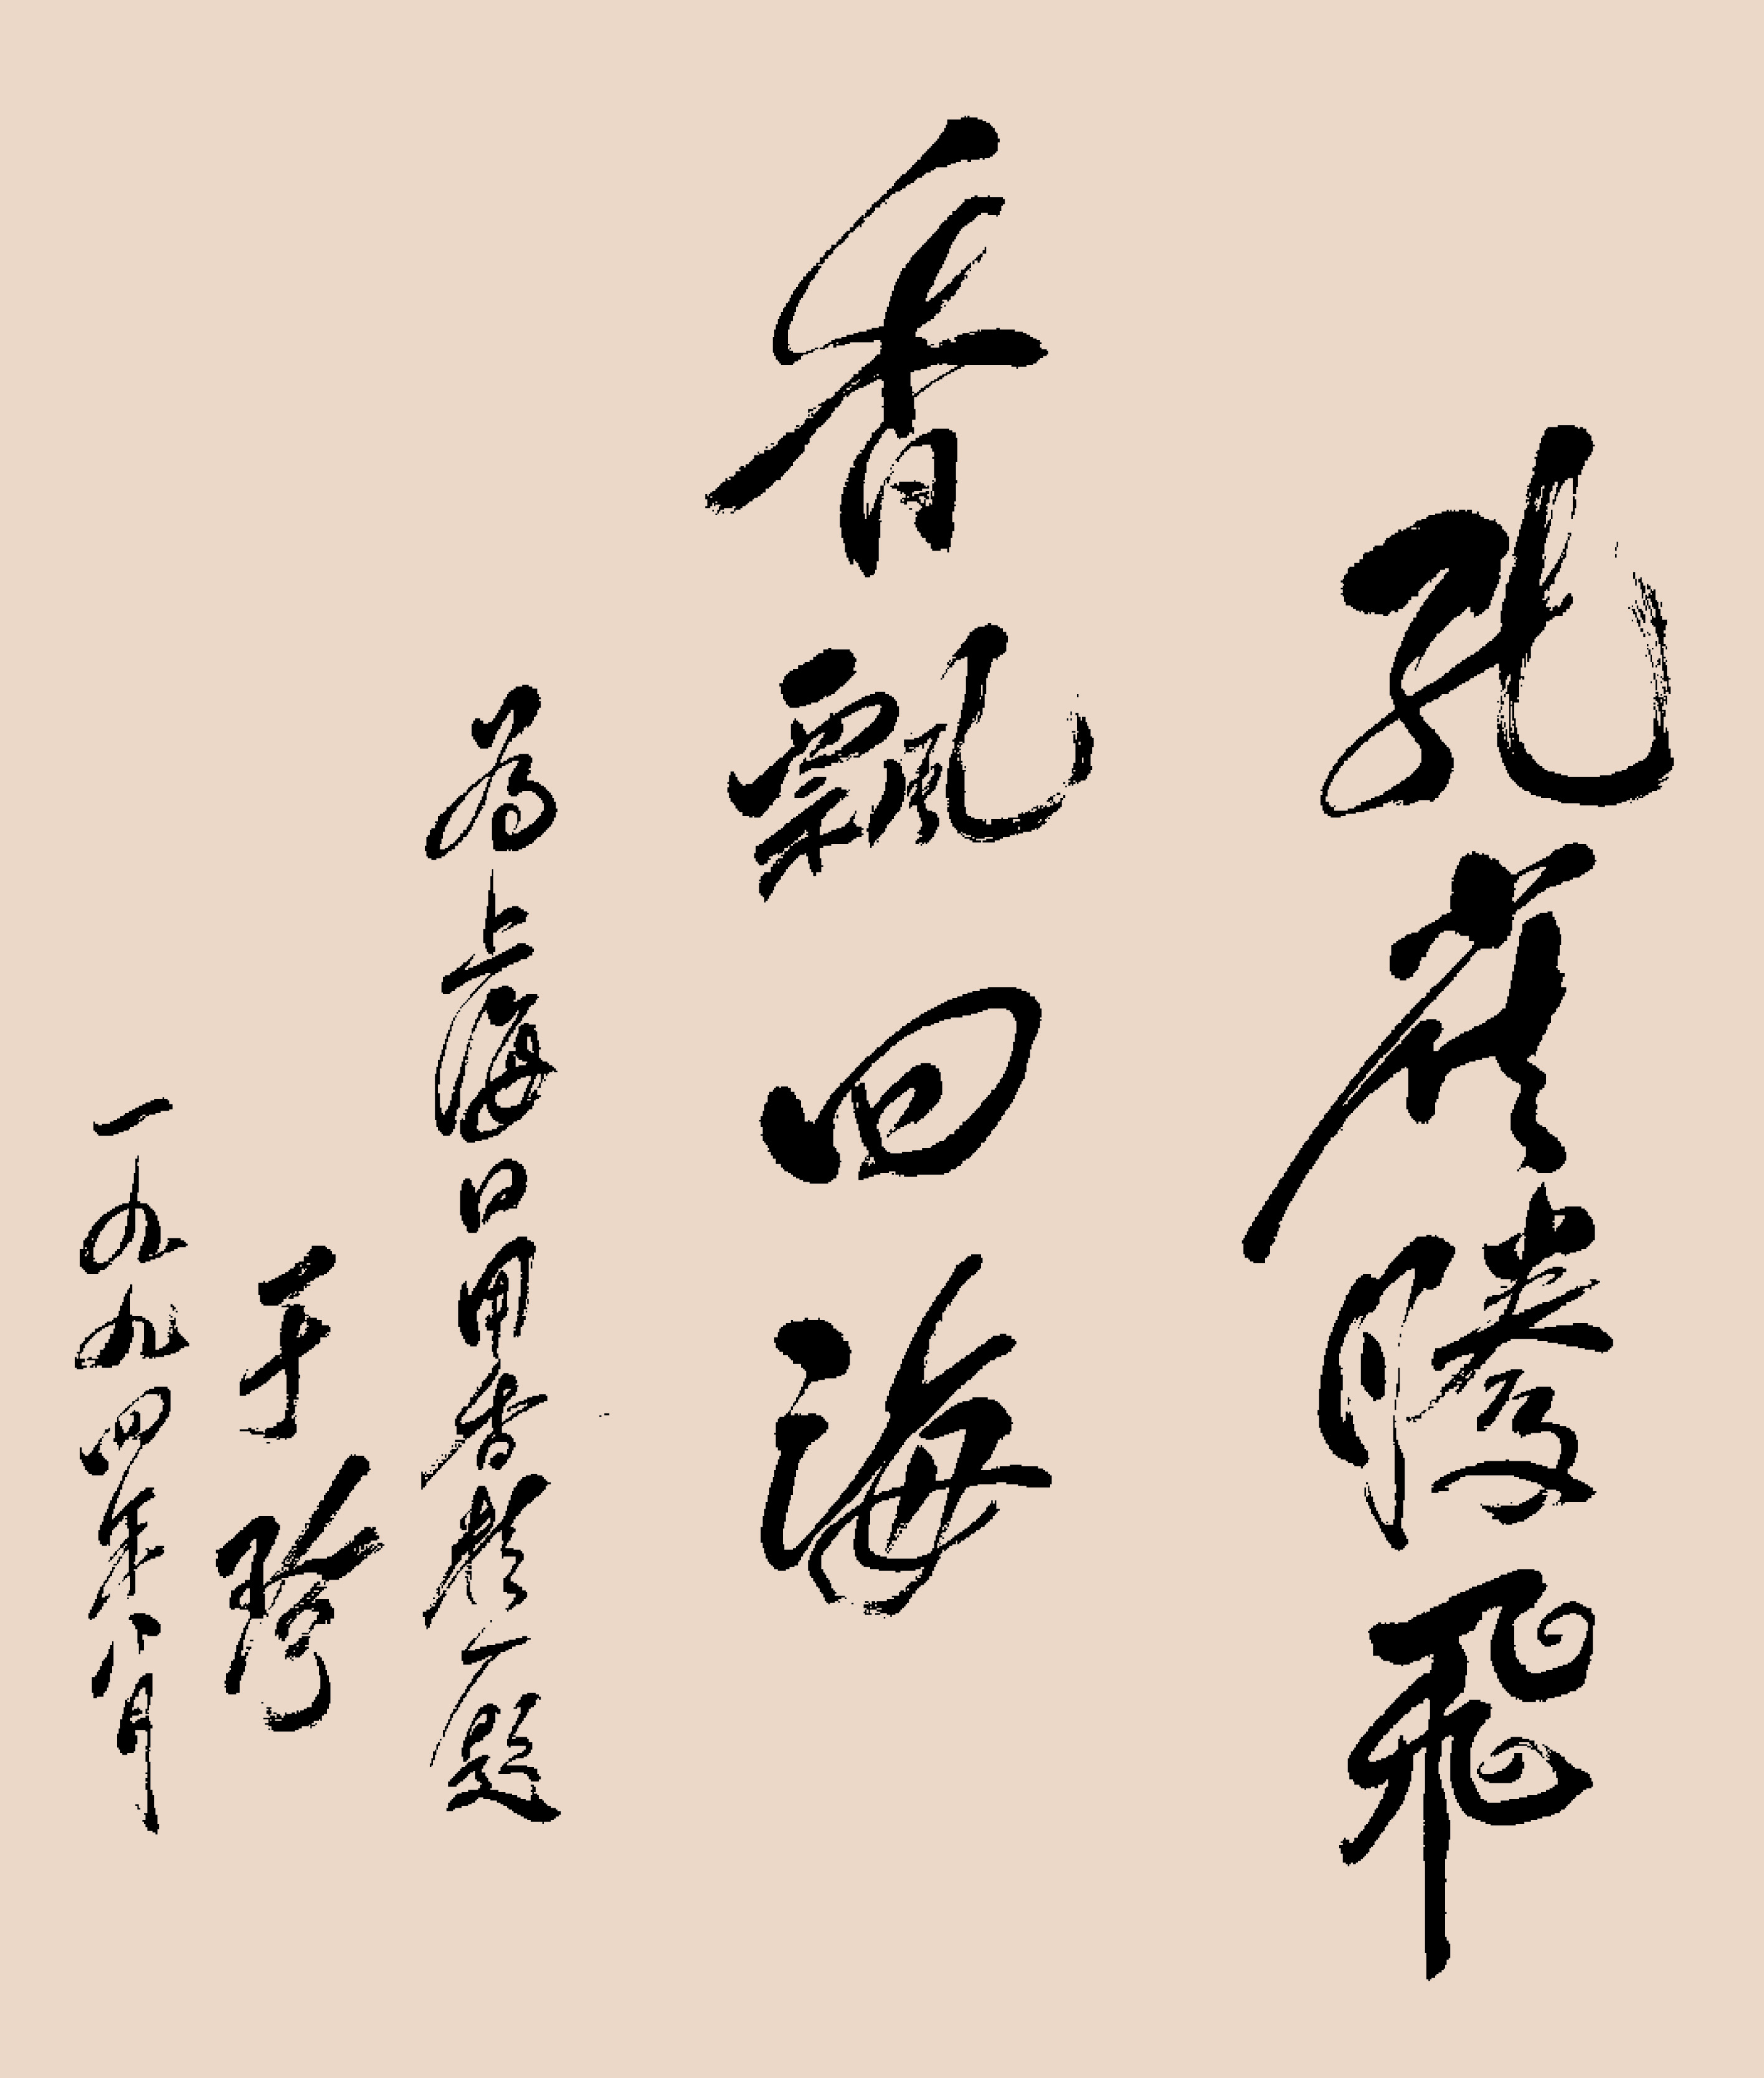 孔雀腾飞
香飘四海
为上海日用香精厂题
于玲
一九九四年八月